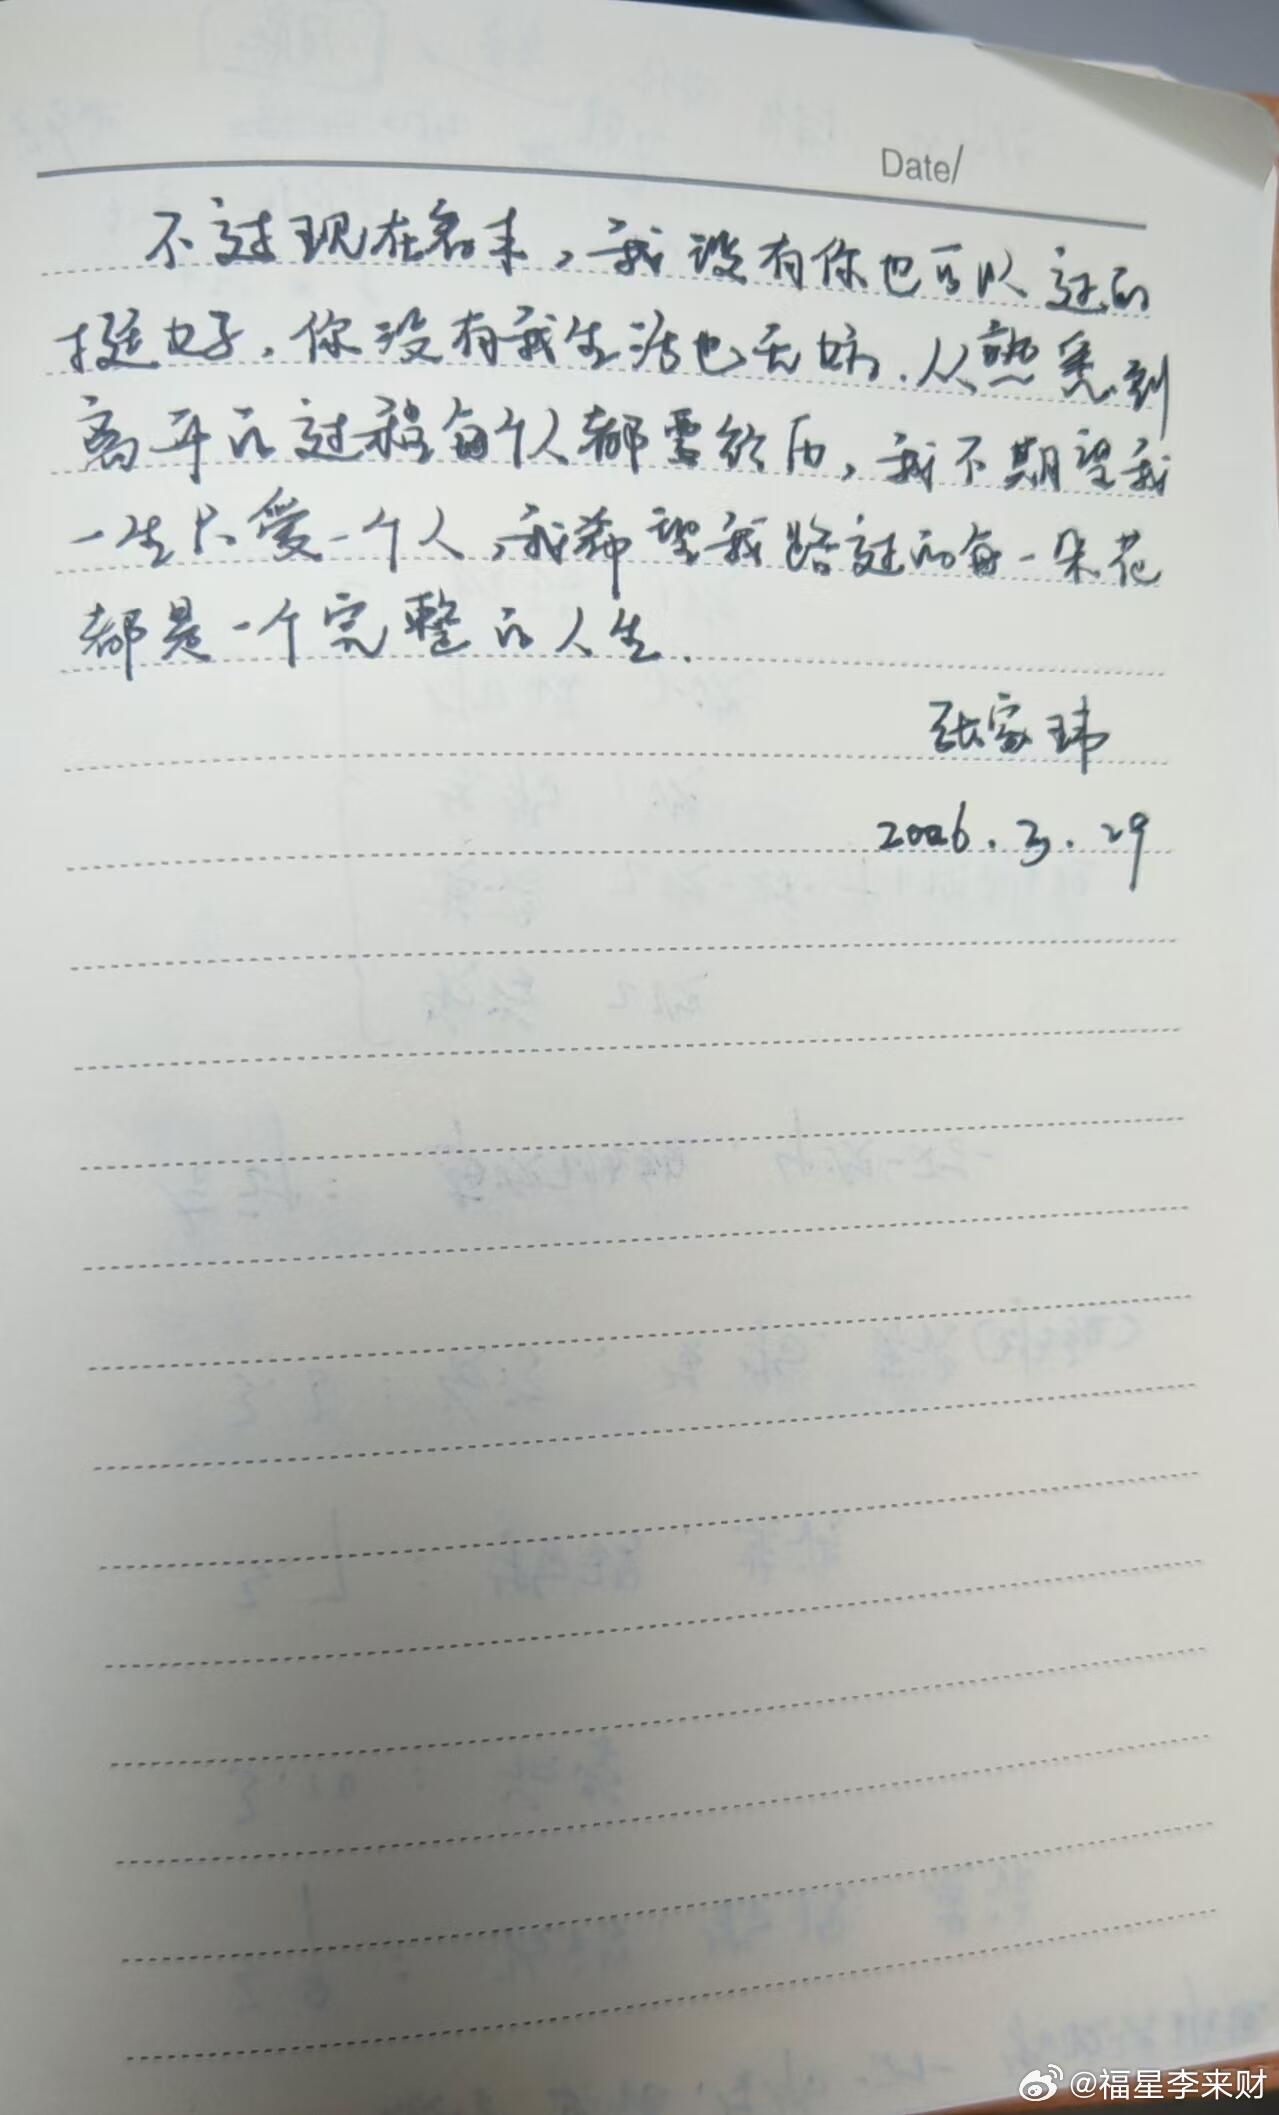 Date/
不过现在看来，我没有你也可以过的
挺好，你没有我生活也无妨.从熟悉到
离开的过程每个人都要经历，我不期望我
一生只爱一个人，我希望我路过的每一朵花
都是一个完整的人生.
张家玮
2026.3.29
@福星李来财